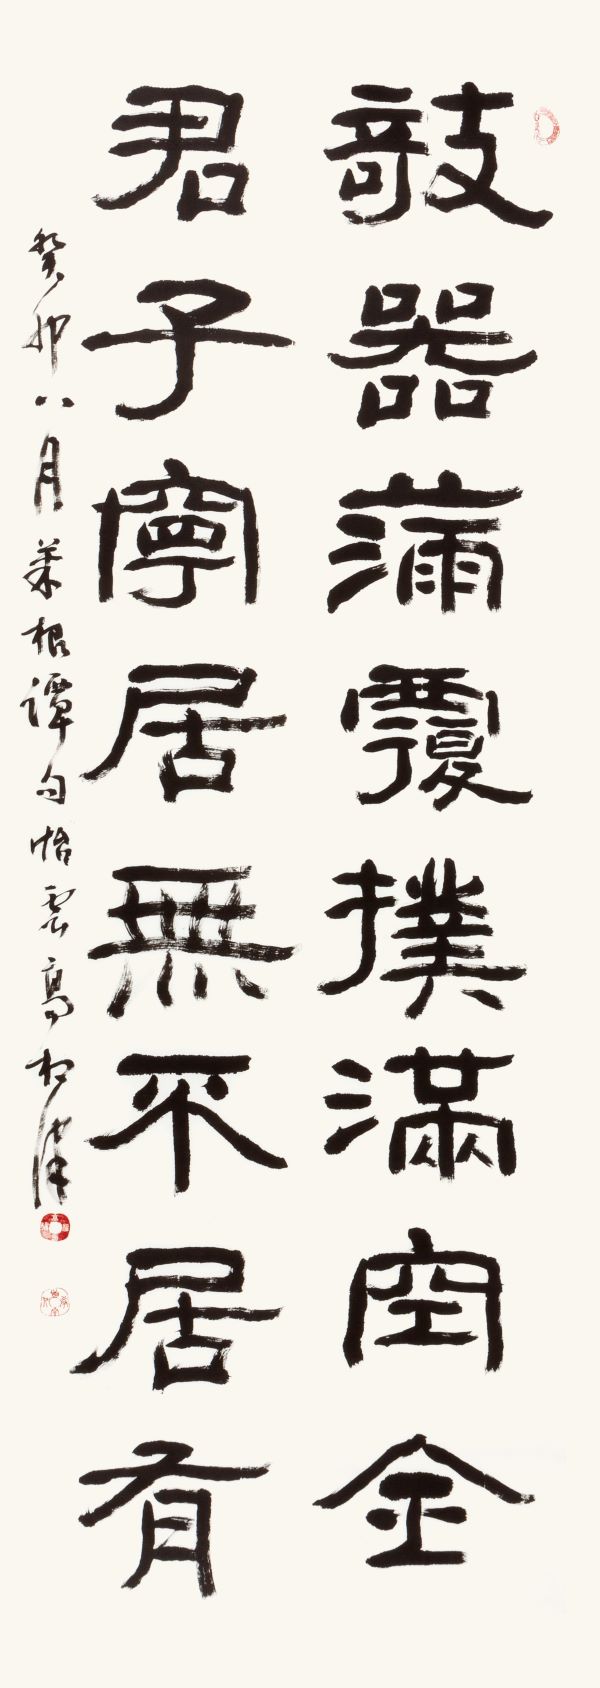 攲器滿覆撲滿空金
君子寧居無不居有
癸卯八月菜根譚句怡雲高